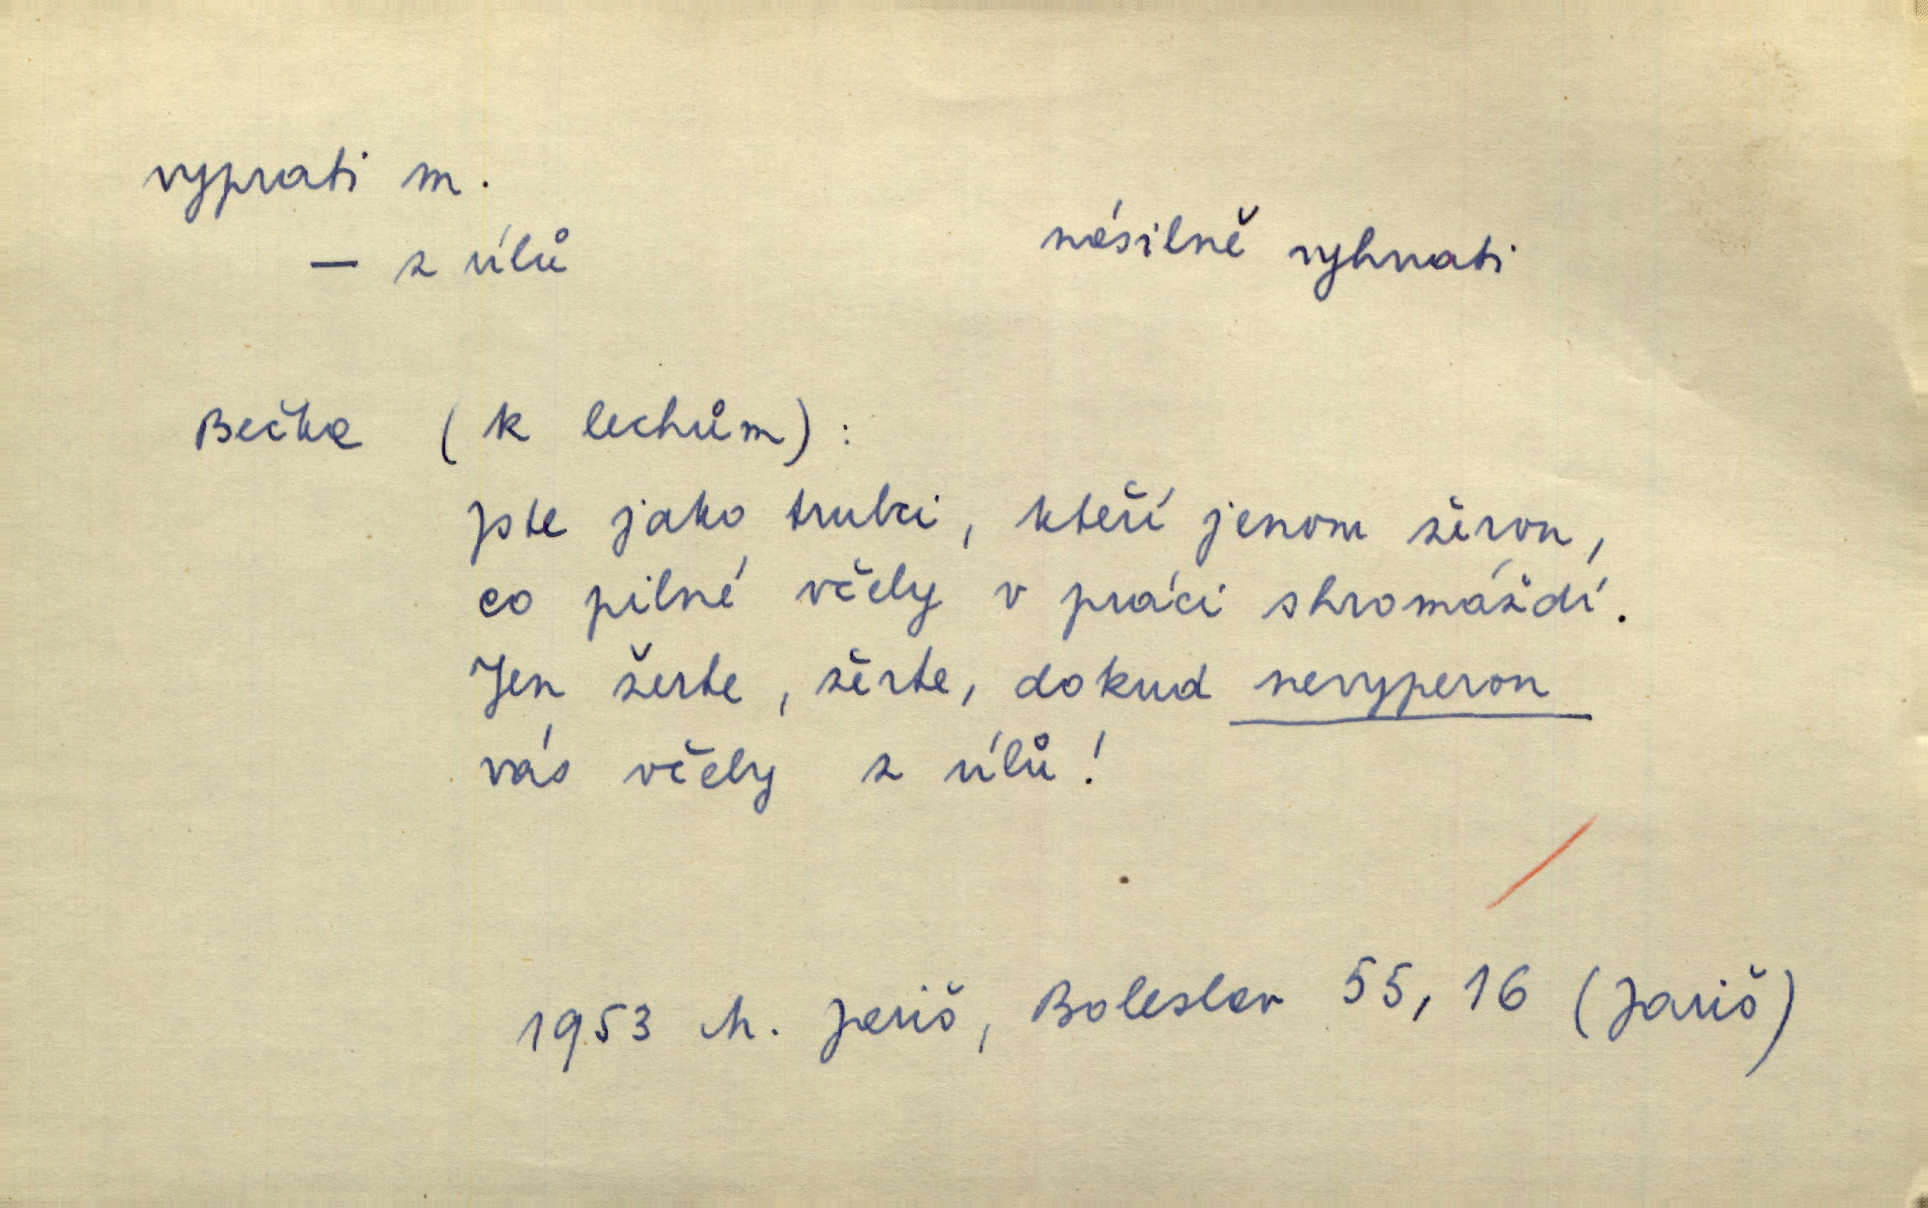 vyprati m.
— z úlů
násilně vyhnati
Bečka (k lechům):
Jste jako trubci, kteří jenom žerou,
co pilné včely v práci shromáždí.
Jen žerte, žerte, dokud nevyperou
vás včely z úlů!
1953 M. Jariš, Boleslav 55, 16 (Jariš)